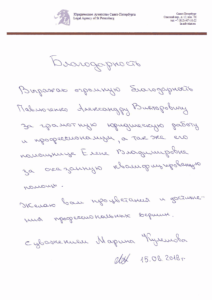 Юридическое агентство Санкт-Петербурга
Legal Agency of St. Petersburg
Санкт-Петербург
Благодарность
Выражаю огромную благодарность
Александру Викторовичу
За грамотную юридическую работу
и профессионализм, а также его
помощнице Елене Владимировне
за оказанную квалифицированную
помощь.
Желаю вам процветания и
профессиональных вершин.
с уважением Марина
15.08.2018г.